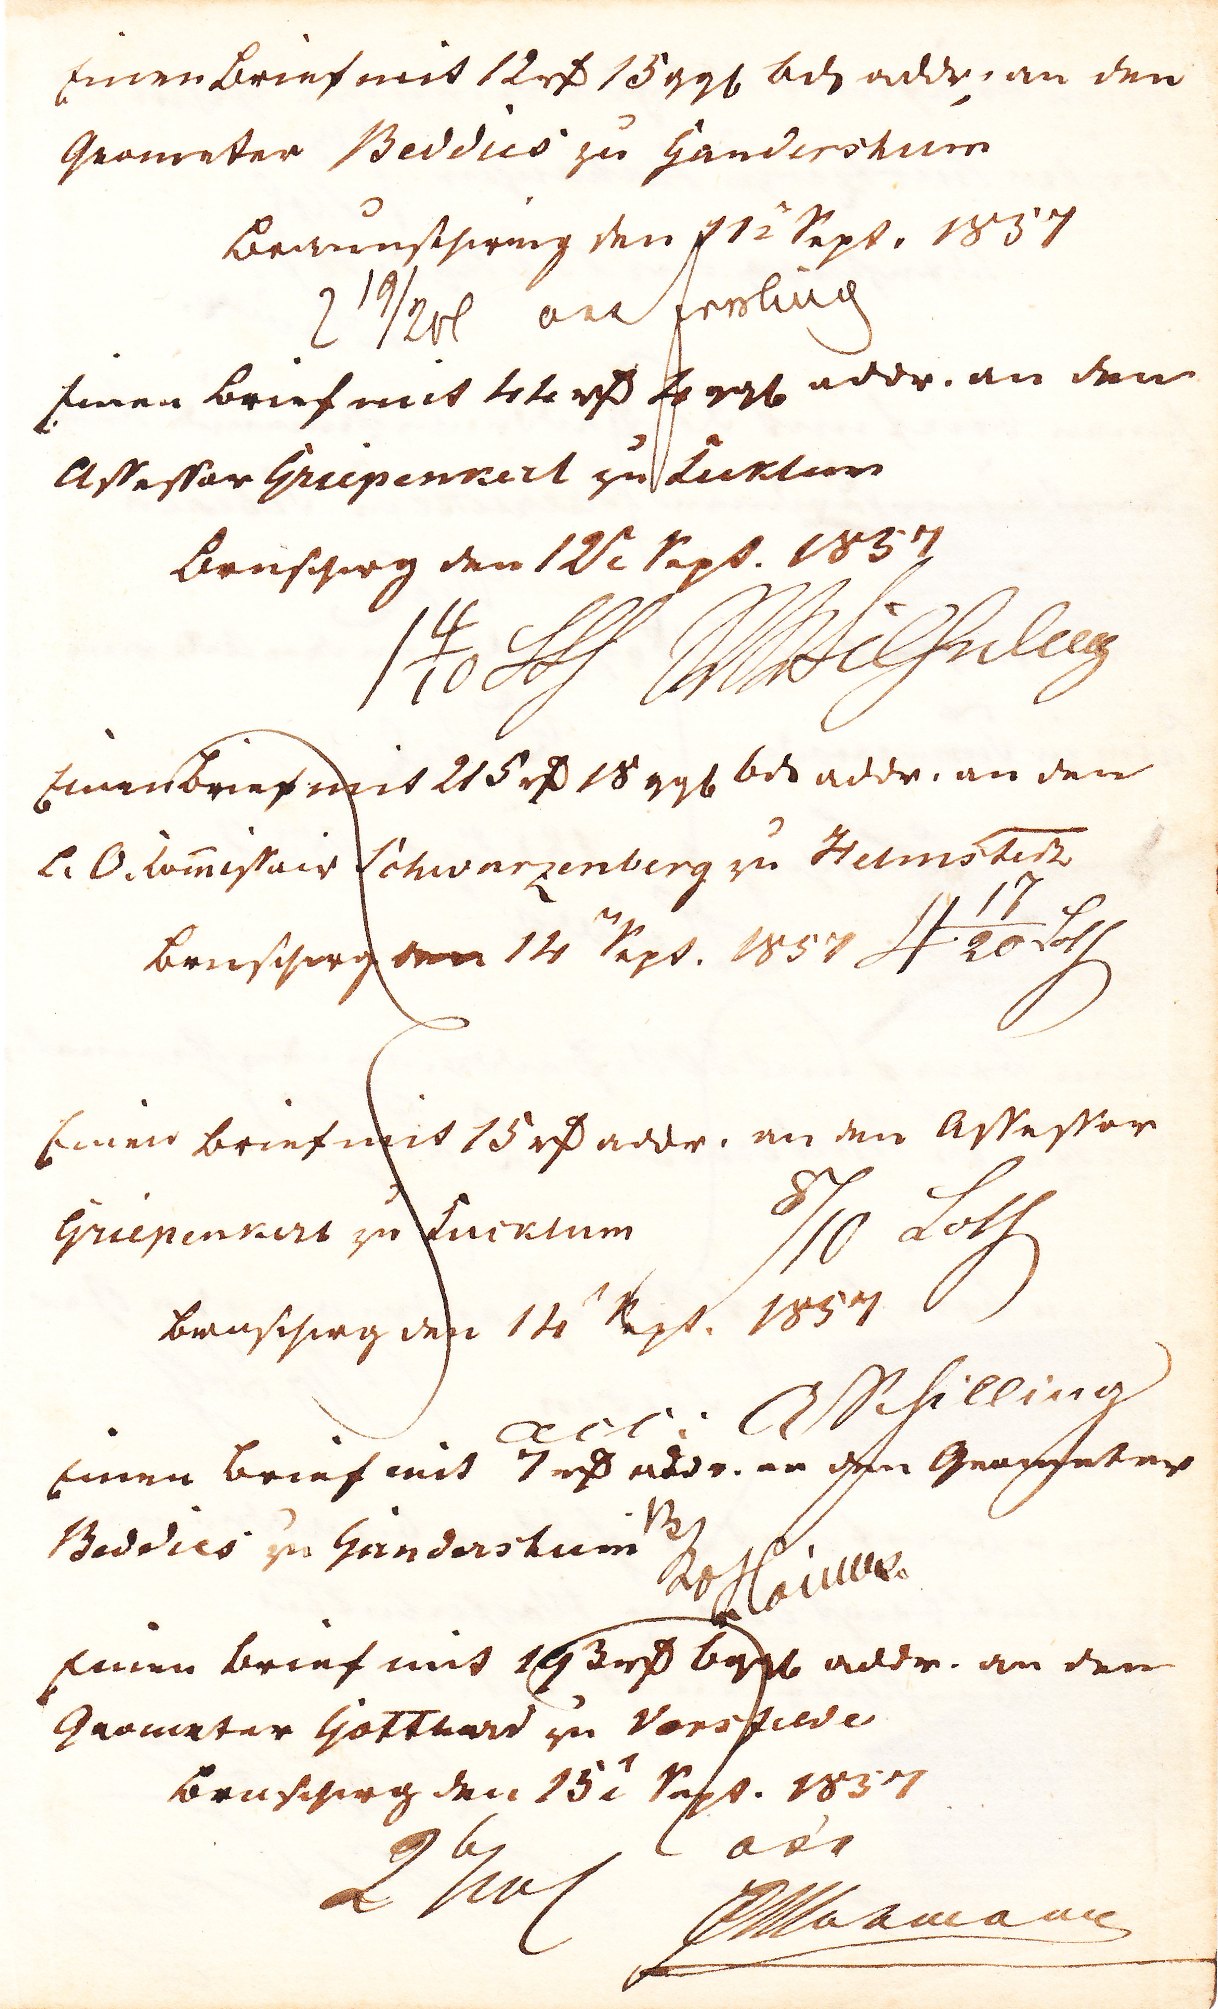 Einen Brief mit 12 rß 15 ggl bdg addr. an den
Geometer Beddies zu Gandersheim
Braunschweig den 11t Sept. 1857
2 19/20 l acc
Einen Brief mit 44 rß 4 ggl addr. an den
Assessor Griepenkerl zu Lucklum
Brnschwg den 12t Sept. 1857
1 4/10 Lth
Einen Brief mit 215 rß 18 ggl bdg addr. an den
L. O. Commissair Schwarzenberg zu Helmstedt
Brnschwg den 14 Sept. 1857 4 17/20 Loth
Einen Brief mit 15 rß addr. an den Assessor
Griepenkerl zu Lucklum 8/10 Loth
Brnschwg den 14 Sept. 1857
acc: A Schilling
Einen Brief mit 7 rß addr. an den Geometer
Beddies zu Gandersheim
13/20
Einen Brief mit 193 rß 6 ggl addr. an den
Geometer Gotthard zu Vorsfelde
Brnschwg den 15t Sept. 1857
2 6/10 l acc